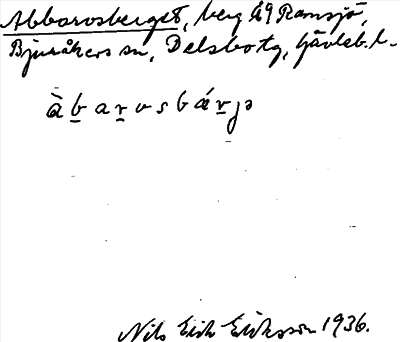 Abbarosberget, berg ÅÄ Ramsjö,
Bjuråkers sn, Delsbo tg, Gävleb. l.
à b a r o s b á r j ə
Nils Erik Eriksson 1936.